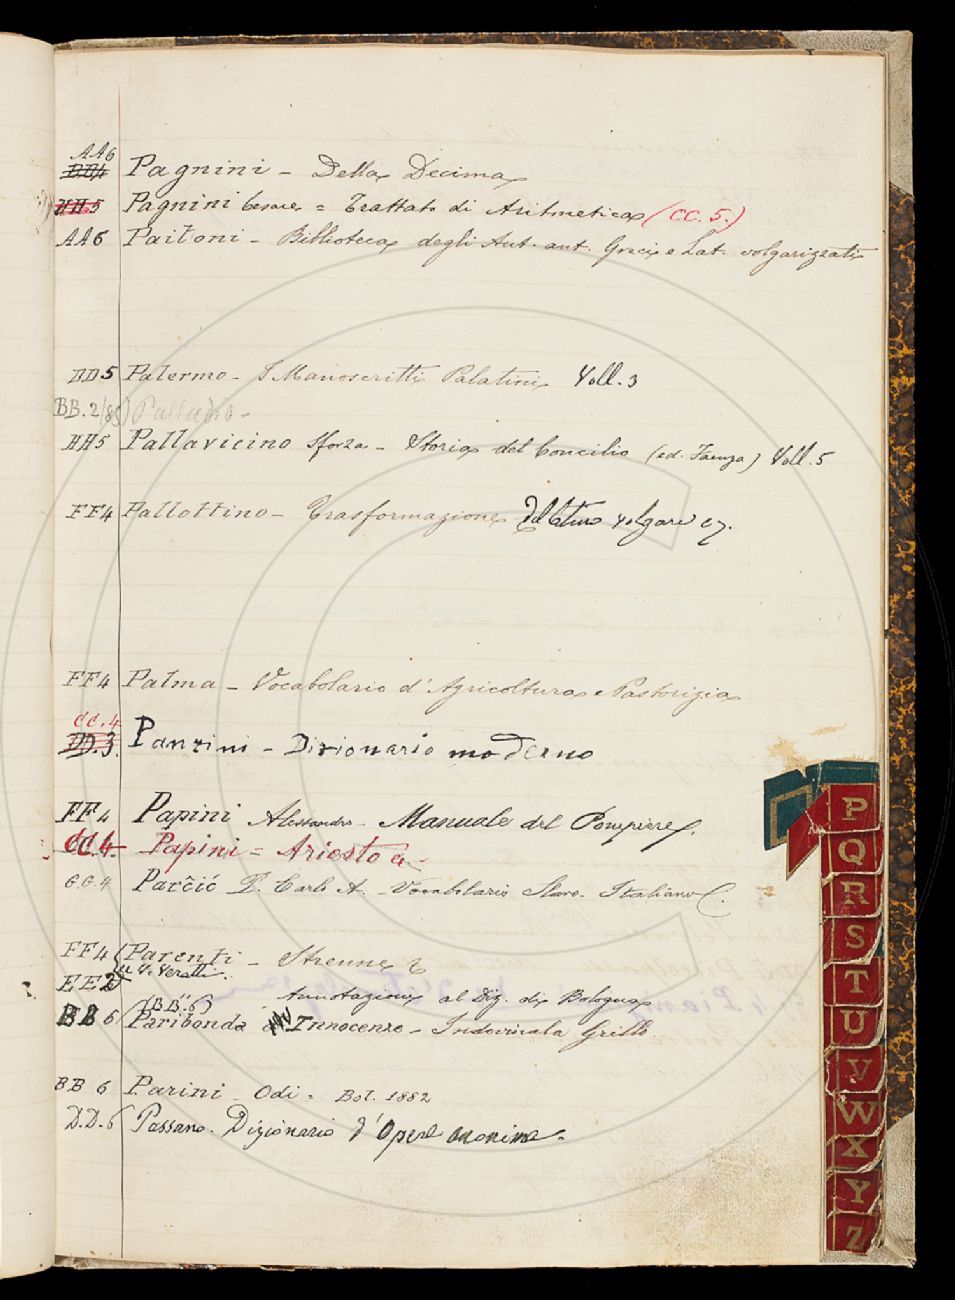 AA6
DD4 Pagnini - Della Decima
HH5 Pagnini Cesare = Trattato di Aritmetica (CC. 5.)
AA6 Paitoni - Biblioteca degli Aut. ant. Greci e Lat. volgarizzati
DD5 Palermo - I Manoscritti Palatini Voll. 3
BB. 2/85) Palladio -
HH5 Pallavicino Sforza - Storia del Concilio (ed. Faenza) Voll. 5
FF4 Pallottino - Trasformazione volgare
FF4 Palma - Vocabolario d'Agricoltura e Pastorizia
CC. 4
DD. 3. Panzini - Dizionario moderno
FF4 Papini Alessandro - Manuale del Pompiere.
CC. 4 Papini = Ariosto
GG. 4 Parčić P. Carlo A. - Vocabolario Slavo-Italiano
FF4 Parenti - Strenne
V. Veratti.
EE2 Annotazioni al Diz. di Bologna
(BB. 6)
BB 6 Paribonda Innocenzo - Indovinala Grillo
BB 6 Parini - Odi - Bol. 1882
D.D. 6 Passano. Dizionario d'Opere anonime.
P
Q
R
S
T
U
V
W
X
Y
Z